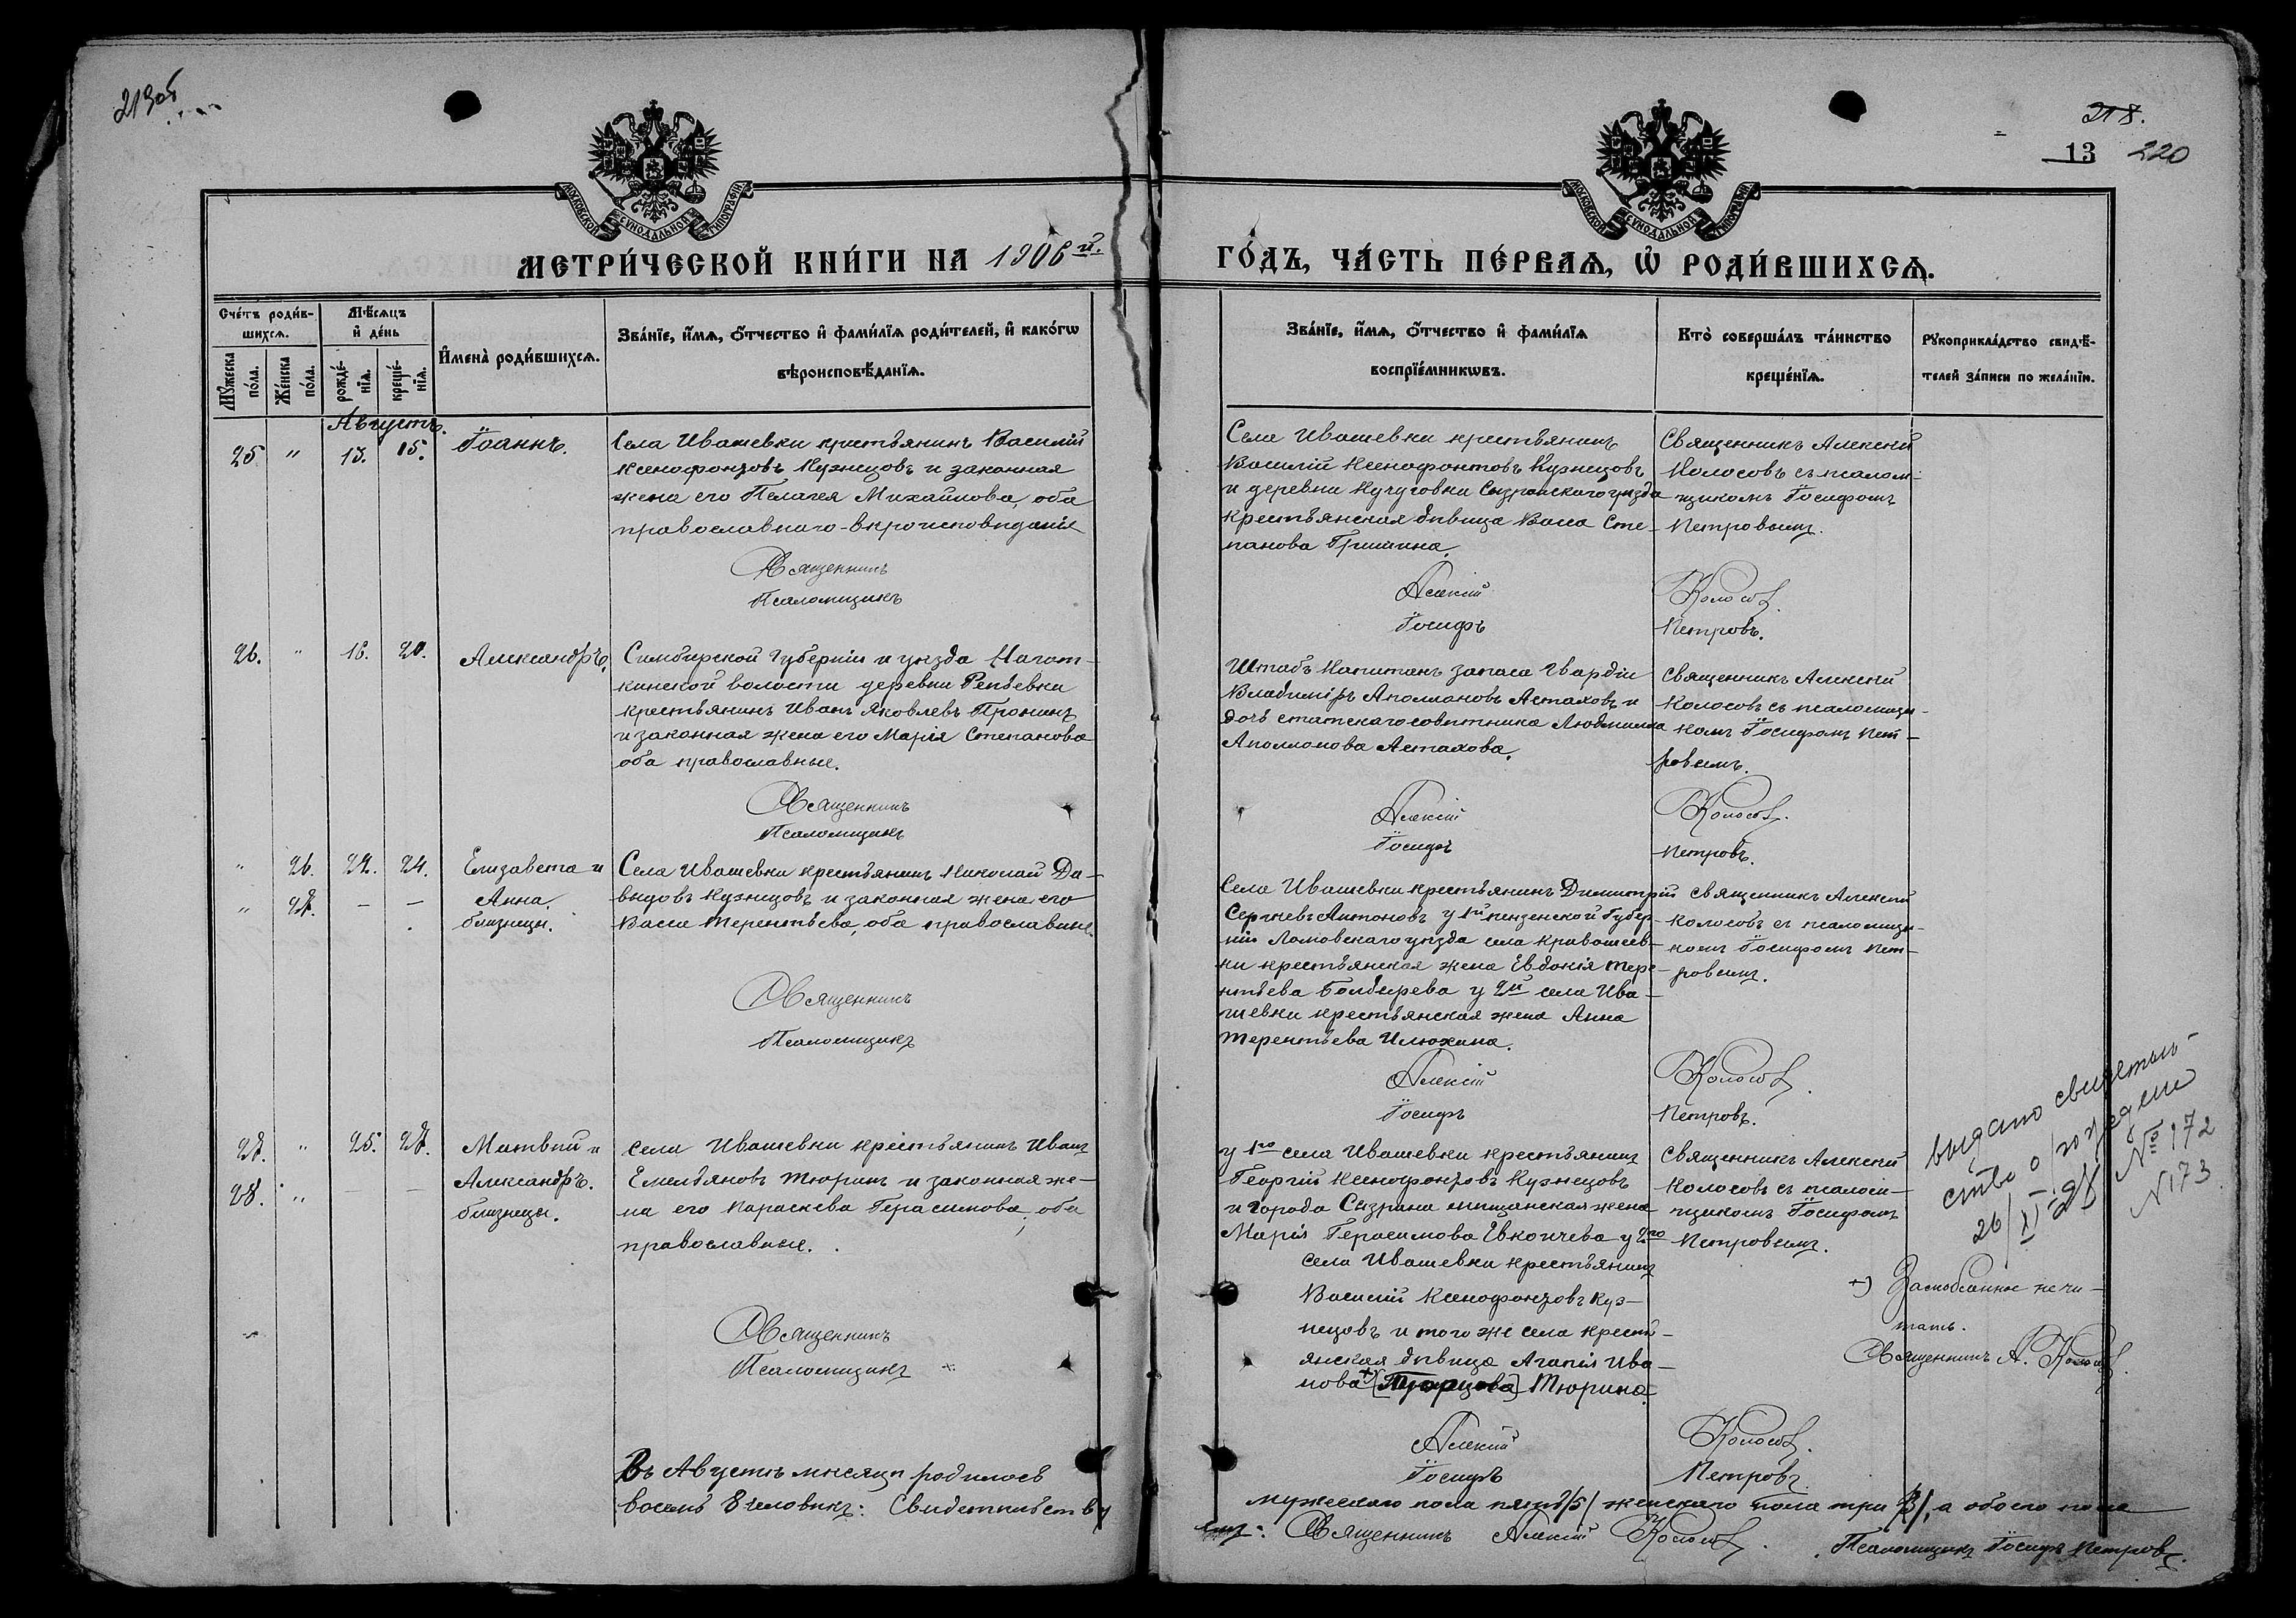 219об
218.
13 220
МОСКОВСКОЙ СѴНОДАЛЬНОЙ ТИПОГРАФІИ
МОСКОВСКОЙ СѴНОДАЛЬНОЙ ТИПОГРАФІИ
МЕТРИ́ЧЕСКОЙ КНИ́ГИ НА 1906й.
ГО́ДЪ, ЧА́СТЬ ПЕ́РВАѦ, Ѡ҆ РОДИ́ВШИХСѦ.
Сче́тъ роди́в-
шихсѧ.
Мꙋ́жеска по́ла.
Же́нска по́ла.
Мѣ́сѧцъ
и҆ де́нь
рожде́-
нїѧ.
креще́-
нїѧ.
И҆мена̀ роди́вшихсѧ.
Зва́нїе, и҆́мѧ, ѻ҆́тчество и҆ фами́лїѧ роди́телей, и҆ како́гѡ
вѣроисповѣ́данїѧ.
Зва́нїе, и҆́мѧ, ѻ҆́тчество и҆ фами́лїѧ
воспрїе́мникѡвъ.
Кто̀ соверша́лъ та́инство
креще́нїѧ.
Рꙋкоприкла́дство свидѣ́-
телей за́писи по жела́нїю.
Августъ.
25 " 13. 15. Іоаннъ.
Села Ивашевки крестьянинъ Василій
Ксенофонтовъ Кузнецовъ и законная
жена его Пелагея Михайлова, оба
православнаго вѣроисповѣданія
Священникъ
Псаломщикъ
Села Ивашевки крестьянинъ
Василій Ксенофонтовъ Кузнецовъ
и деревни Кучуговки Сызранскаго уѣзда
крестьянская дѣвица Васса Сте-
панова Гришина.
Алексій
Іосифъ
Священникъ Алексій
Колосовъ съ псалом-
щикомъ Іосифомъ
Петровымъ.
Колосовъ.
Петровъ.
26. " 18. 20. Александръ.
Симбирской губерніи и уѣзда Нагат-
кинской волости деревни Репьевки
крестьянинъ Иванъ Яковлевъ Пронинъ
и законная жена его Марія Степанова
оба православные.
Священникъ
Псаломщикъ
Штабъ Капитанъ запаса Гвардіи
Владиміръ Аполлоновъ Астаховъ и
дочь статскаго совѣтника Людмилла
Аполлонова Астахова.
Алексій
Іосифъ
Священникъ Алексій
Колосовъ съ псаломщи-
комъ Іосифомъ Пет-
ровымъ.
Колосовъ.
Петровъ.
" 26. 22. 24. Елизавета и
" 27. — — Анна.
близнецы.
Села Ивашевки крестьянинъ Николай Да-
выдовъ Кузнецовъ и законная жена его
Васса Терентьева, оба православные.
Священникъ
Псаломщикъ
Села Ивашевки крестьянинъ Димитрій
Сергѣевъ Антоновъ у 1й пензенской губер-
ніи Ломовскаго уѣзда села Кривошеев-
ки крестьянская жена Евдокія Тере-
нтьева Болдырева у 2й села Ива-
шевки крестьянская жена Анна
Терентьева Илюхина.
Алексій
Іосифъ
Священникъ Алексій
Колосовъ съ псаломщи-
комъ Іосифомъ Пет-
ровымъ.
Колосовъ.
Петровъ.
27. " 25. 27. Матвѣй и
28. " — — Александръ.
близнецы.
Села Ивашевки крестьянинъ Иванъ
Емельяновъ Тюринъ и законная же-
на его Параскева Герасимова, оба
православные.
Священникъ
Псаломщикъ
у 1го села Ивашевки крестьянинъ
Георгій Ксенофонтовъ Кузнецовъ
и города Сызрана мѣщанская жена
Марія Герасимова у 2го
села Ивашевки крестьянинъ
Василій Ксенофонтовъ Куз-
нецовъ и того же села крестья-
янская дѣвица Агапія Ива-
нова Тюрина.
Алексій
Іосифъ
Священникъ Алексій
Колосовъ съ псалом-
щикомъ Іосифомъ
Петровымъ.
Колосовъ.
Петровъ.
выдано свидетель-
ство о рождении
26/XI 28 № 172
N 173
+) Заскобленное не чи-
тать.
Священникъ А. Колосовъ.
Въ Августѣ мѣсяцѣ родилось
мужескаго пола пять /5/ женскаго пола три /3/, а обоего пола
восемь 8 человѣкъ: Свидѣтельству
емъ: Священникъ Алексій Колосовъ.
Псаломщикъ Іосифъ Петровъ.